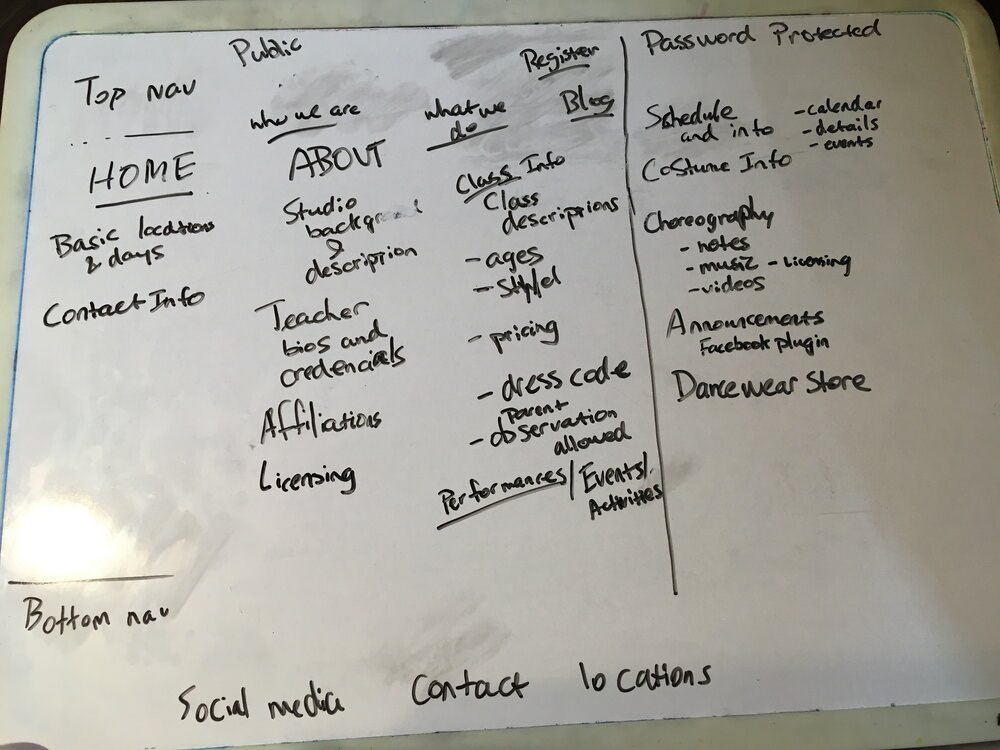 Public
Top nav
HOME
Basic locations
& days
Contact Info
who we are
ABOUT
Studio
background
&
description
Teacher
bios and
credencials
Affiliations
Licensing
what we
do
Class Info
Class
descriptions
- ages
- style
- pricing
- dress code
Parent
- observation
allowed
Performances / Events/
Activities
Register
Blog
Password Protected
Schedule
and info
- calendar
- details
- events
Costume Info
Choreography
- notes
- music - Licensing
- videos
Announcements
Facebook plugin
Dancewear Store
Bottom nav
Social media Contact locations